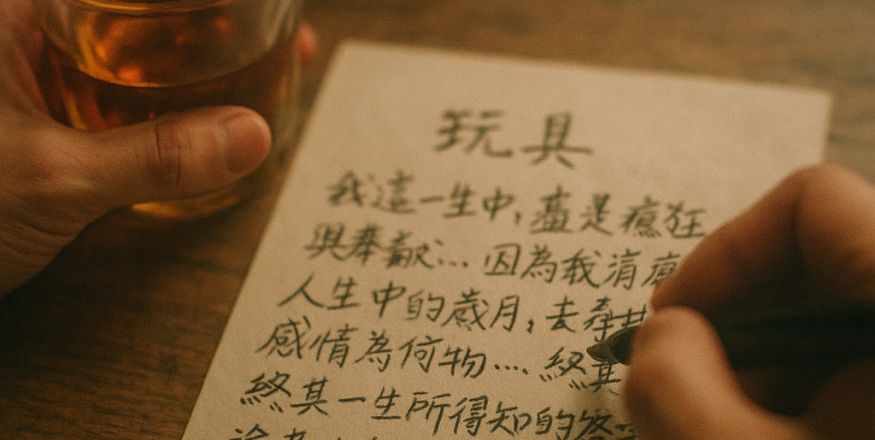 玩具
我這一生中，盡是瘋狂
與奉獻… 因為我清
人生中的歲月，去尋
感情為何物…. 終其
終其一生所得知的答